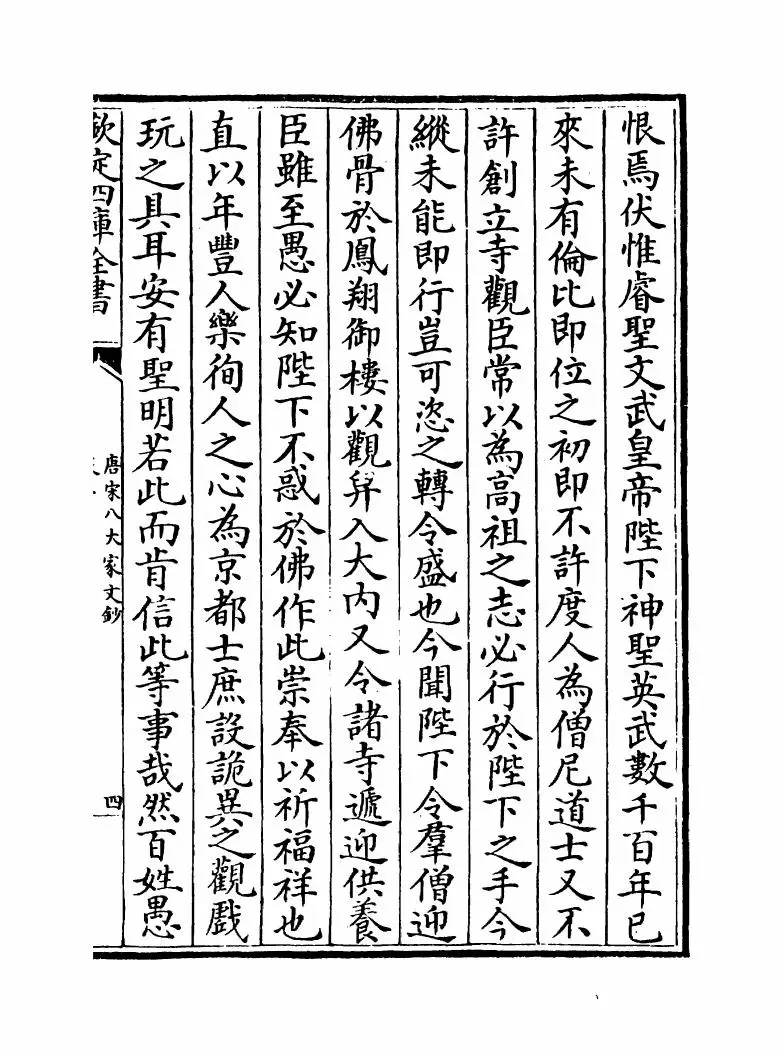 恨焉伏惟睿聖文武皇帝陛下神聖英武數千百年已
來未有倫比即位之初即不許度人為僧尼道士又不
許創立寺觀臣常以為高祖之志必行於陛下之手今
縱未能即行豈可恣之轉令盛也今聞陛下令羣僧迎
佛骨於鳳翔御樓以觀舁入大内又令諸寺遞迎供養
臣雖至愚必知陛下不惑於佛作此崇奉以祈福祥也
直以年豐人樂徇人之心為京都士庶設詭異之觀戲
玩之具耳安有聖明若此而肯信此等事哉然百姓愚
欽定四庫全書
唐宋八大家文鈔
四